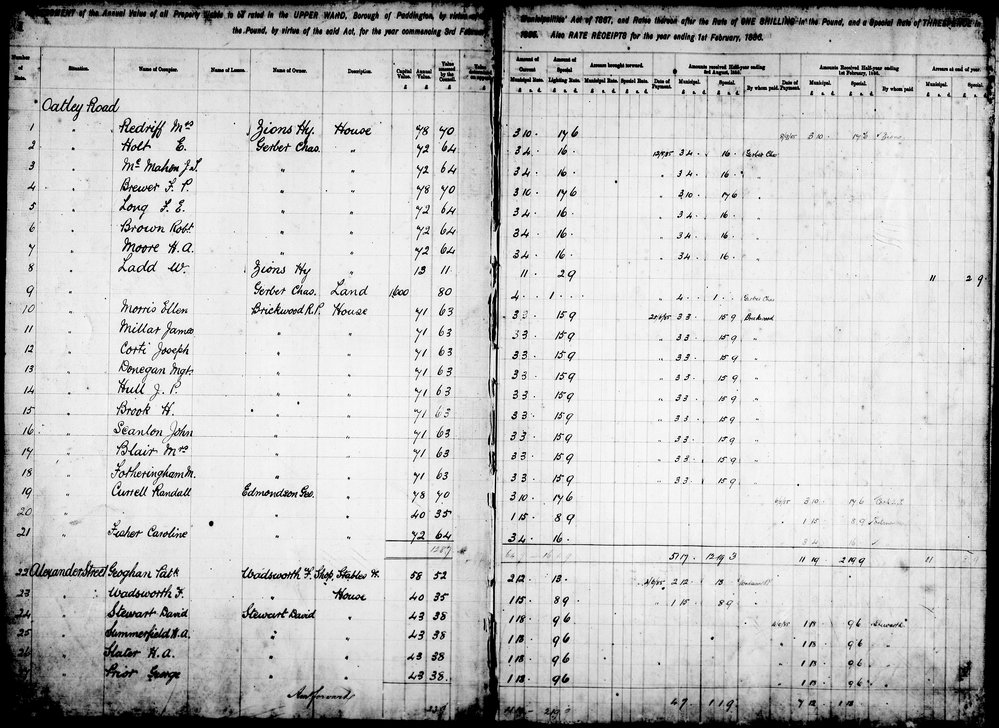 of the Annual Value of all Property liable to be rated in the UPPER WARD, Borough of Paddington, by virtue of the Municipalities Act of 1867, and Rates thereon after the Rate of ONE SHILLING in the Pound, and a Special Rate of THREEPENCE in
the Pound, by virtue of the said Act, for the year commencing 3rd February, 1885. Also RATE RECEIPTS for the year ending 1st February, 1886.
Number of Rate. Situation. Name of Occupier. Name of Lessee. Name of Owner. Description. Capital Value. Annual Value. Value assessed by the Council. Amount of Current Municipal Rate. Amount of Special Lighting Rate. Amounts brought forward. Municipal Rate. Special Rate. Date of Payment. Amounts received Half-year ending 3rd August, 1885. Municipal. Special. By whom paid. Date of Payment. Amounts Received Half-year ending 1st February, 1886. Municipal. Special. By whom paid Arrears at end of year. Municipal. Special.
Oatley Road
1 " Redriff Mrs Zions Hy. House 78 70 3 10 . 17 6 3 10 . 17 6 Zions
2 " Holt E. Gerber Chas. " 72 64 3 4 . 16 . 3 4 . 16 . Gerber Chas
3 " McMahon J.J. " " 72 64 3 4 . 16 . " 3 4 . 16 . "
4 " Brewer F. P. " " 78 70 3 10 . 17 6 " 3 10 . 17 6 "
5 " Long F. E. " " 72 64 3 4 . 16 . " 3 4 . 16 . "
6 " Brown Robt " " 72 64 3 4 . 16 . " 3 4 . 16 . "
7 " Moore H. A. " " 72 64 3 4 . 16 . " 3 4 . 16 . "
8 " Ladd W. Zions Hy " 13 11 11 . 2 9 11 2 9
9 " Gerber Chas. Land 1600 80 4 . . 1 . . " 4 . . 1 . . Gerber Chas
10 " Morris Ellen Brickwood R.P. House 71 63 3 3 . 15 9 3 3 . 15 9 Brickwood
11 " Millar James " " 71 63 3 3 . 15 9 " 3 3 . 15 9 "
12 " Corti Joseph " " 71 63 3 3 . 15 9 " 3 3 . 15 9 "
13 " Donegan Mgt. " " 71 63 3 3 . 15 9 " 3 3 . 15 9 "
14 " Hull J. P. " " 71 63 3 3 . 15 9 " 3 3 . 15 9 "
15 " Brook H. " " 71 63 3 3 . 15 9 " 3 3 . 15 9 "
16 " Scanlon John " " 71 63 3 3 . 15 9 " 3 3 . 15 9 "
17 " Blair Mrs " " 71 63 3 3 . 15 9 " 3 3 . 15 9 "
18 " Fotheringham M. " " 71 63 3 3 . 15 9 " 3 3 . 15 9 "
19 " Currell Randall Edmondson Geo. " 78 70 3 10 . 17 6 3 10 . 17 6
20 " " " 40 35 1 15 . 8 9 1 15 . 8 9
21 " Fisher Caroline " " 72 64 3 4 . 16 . 3 4 . 16 .
1287 51 17 . 12 19 3 11 19 2 19 9 11
22 Alexander Street Geoghan Patk Wadsworth F. Shop, Stables H. 58 52 2 12 . 13 . 2 12 . 13
23 " Wadsworth F. " House 40 35 1 15 . 8 9 " 1 15 . 8 9
24 " Stewart David Stewart David " 43 38 1 18 . 9 6 1 18 . 9 6
25 " Summerfield H. A. " " 43 38 1 18 . 9 6 1 18 . 9 6 "
26 " Slater H. A. " " 43 38 1 18 . 9 6 1 18 . 9 6 "
" Prior George " " 43 38 1 18 . 9 6 1 18 . 9 6 "
forward 4 7 1 1 9